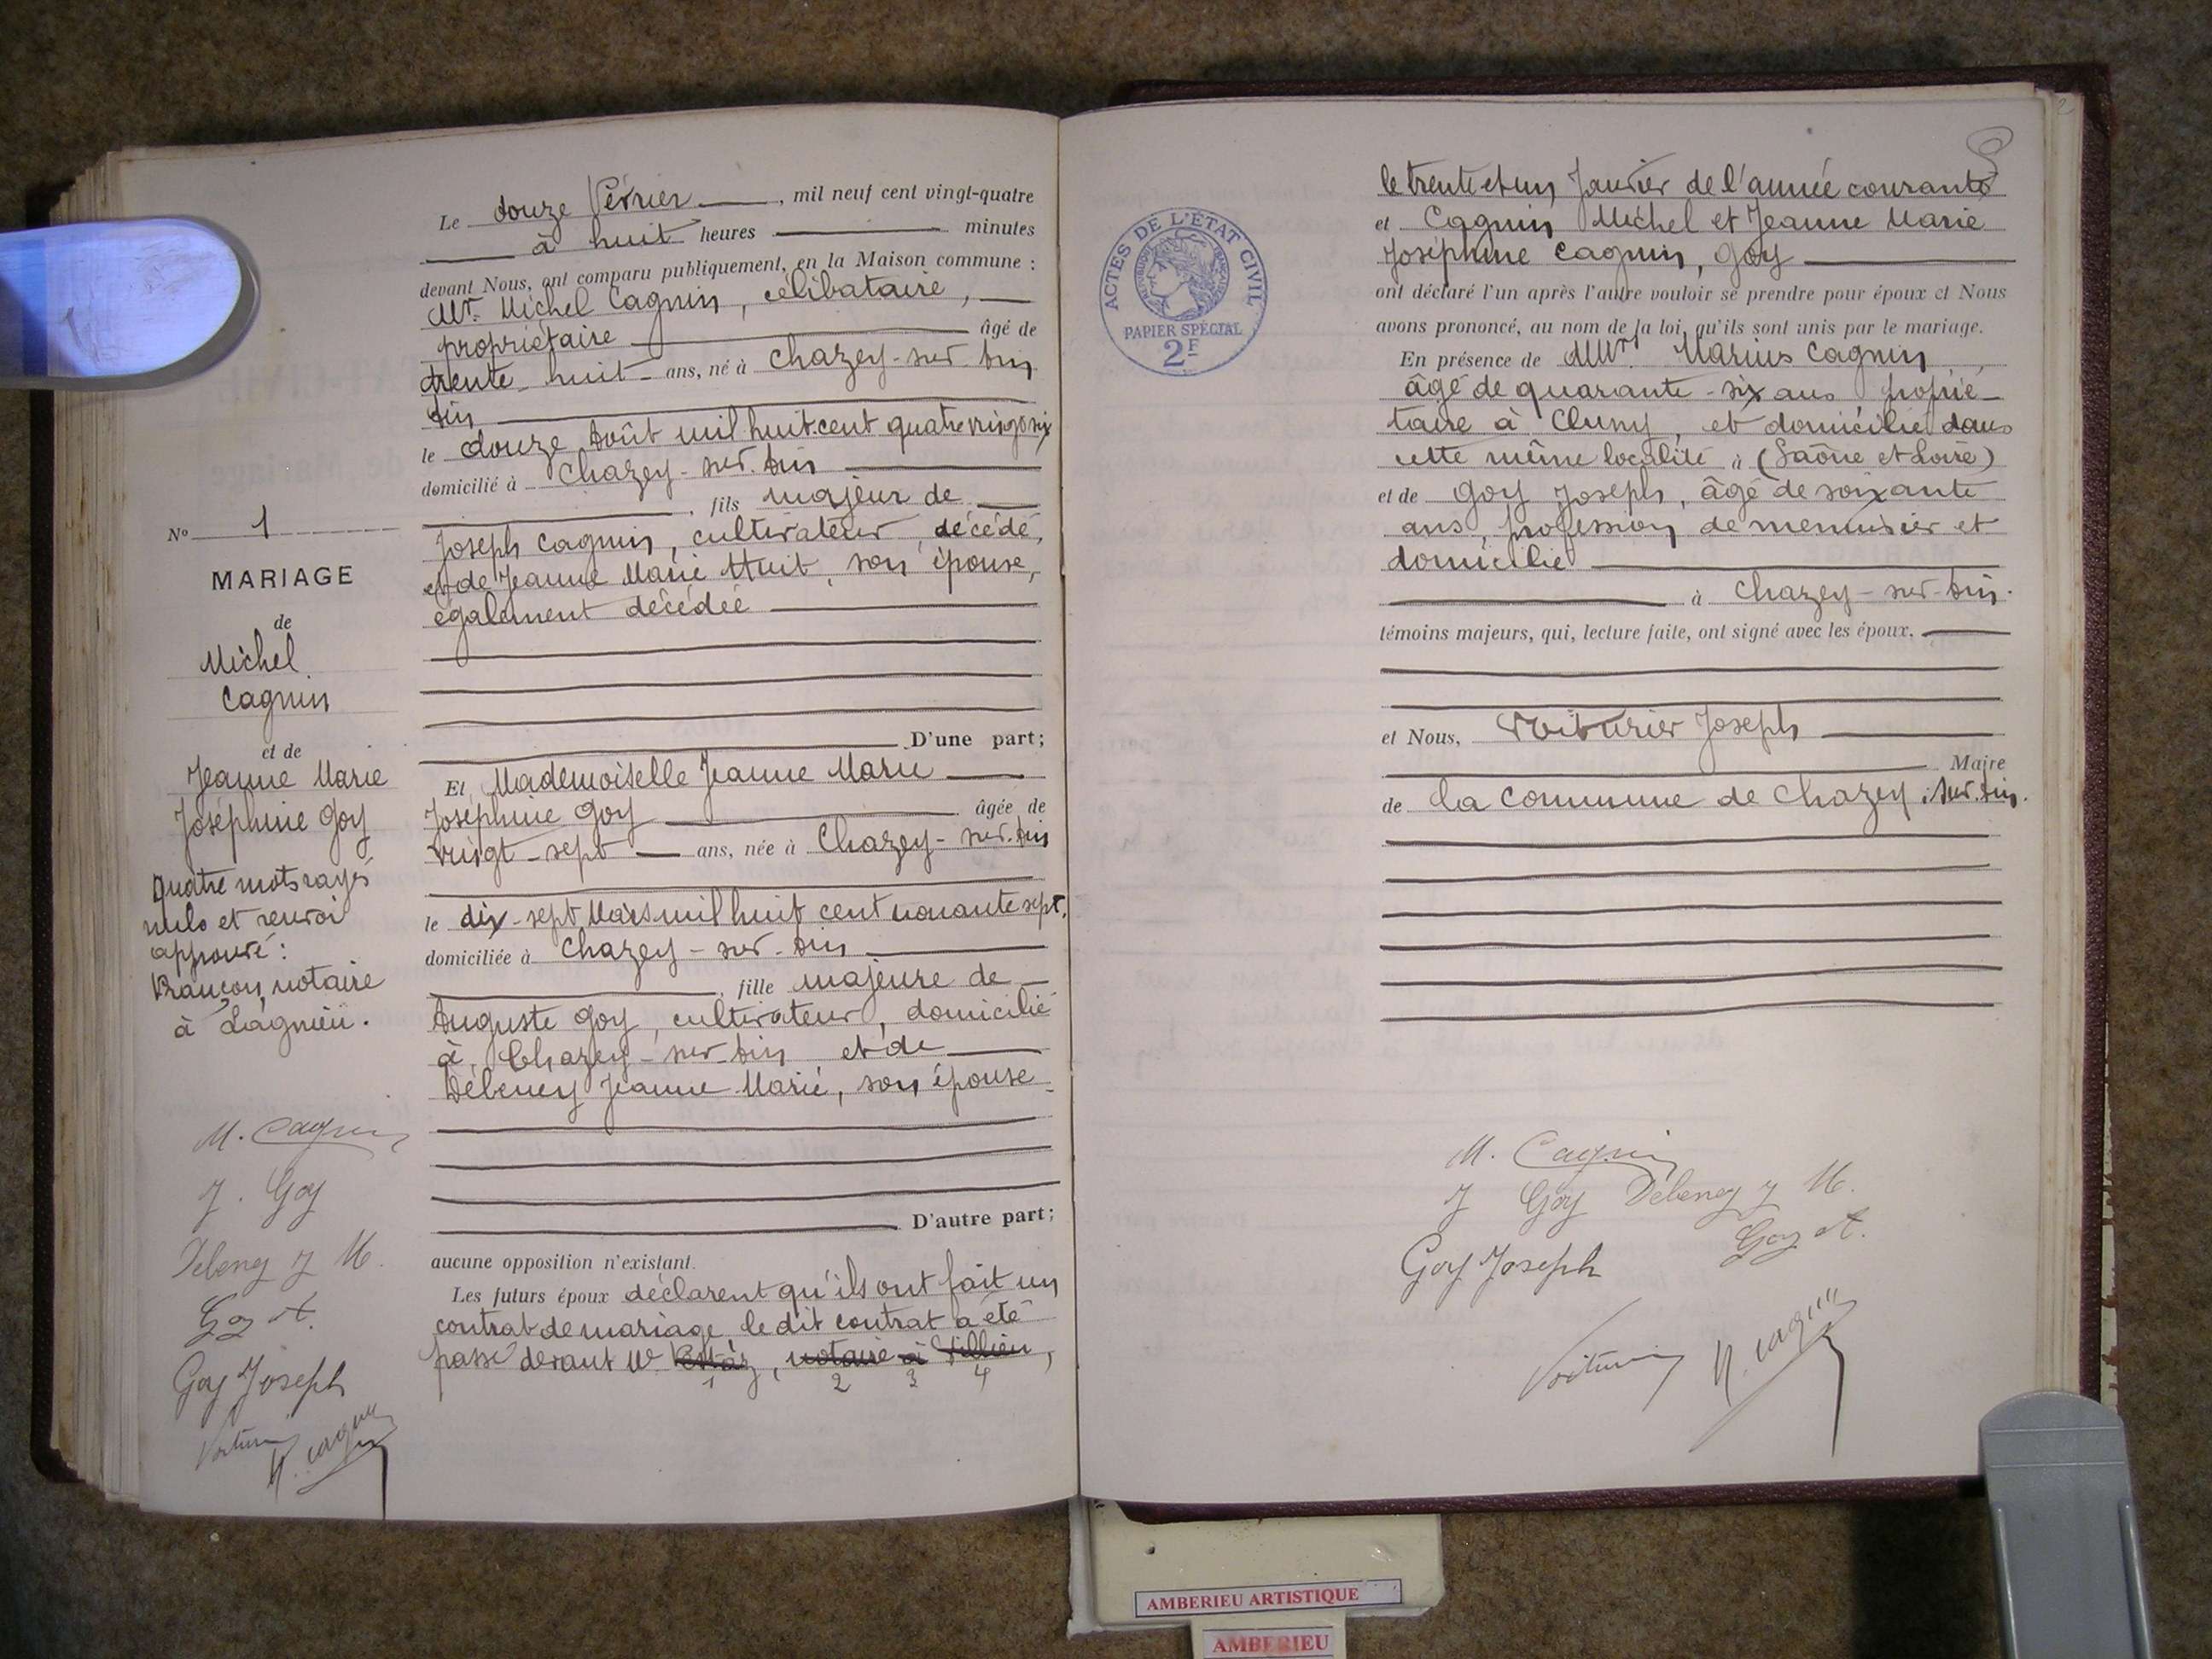 Le douze Février, mil neuf cent vingt-quatre
à huit heures minutes
devant Nous, ont comparu publiquement, en la Maison commune :
Mr. Michel Cagnin, célibataire,
propriétaire âgé de
trente huit ans, né à Chazey-sur-Ain
Ain
le douze Août mil huit cent quatre vingt six
domicilié à Chazey-sur-Ain
, fils majeur de
Joseph Cagnin, cultivateur, décédé,
et de Jeanne Marie Huit, son épouse,
également décédée
D'une part;
Et Mademoiselle Jeanne Marie
Joséphine Goy âgée de
vingt-sept ans, née à Chazey-sur-Ain
le dix-sept Mars mil huit cent nonante sept,
domiciliée à Chazey-sur-Ain
, fille majeure de
Auguste Goy, cultivateur, domicilié
à Chazey-sur-Ain et de
Débeney Jeanne Marie, son épouse
D'autre part;
aucune opposition n'existant.
Les futurs époux déclarent qu'ils ont fait un
contrat de mariage, le dit contrat a été
passé devant Me , notaire à ,
1 2 3 4
No 1
MARIAGE
de
Michel
Cagnin
et de
Jeanne Marie
Joséphine Goy
Quatre mots rayés
nuls et renvoi
approuvé :
notaire
à Lagnieu.
M. Cagnin
J. Goy
Debeney J M.
Goy A.
Goy Joseph
Voiturier
M. Cagnin
2
ACTES DE L'ÉTAT CIVIL
RÉPUBLIQUE FRANÇAISE
PAPIER SPÉCIAL
2F
le trente et un Janvier de l'année courante
et Cagnin Michel et Jeanne Marie
Joséphine Cagnin, Goy
ont déclaré l'un après l'autre vouloir se prendre pour époux et Nous
avons prononcé, au nom de la loi, qu'ils sont unis par le mariage.
En présence de MMrs. Marius Cagnin,
âgé de quarante-six ans proprié-
taire à Cluny, et domicilié dans
cette même localité à (Saône et Loire)
et de Goy Joseph, âgé de soixante
ans, profession de menuisier et
domicilié
à Chazey-sur-Ain.
témoins majeurs, qui, lecture faite, ont signé avec les époux.
et Nous, Voiturier Joseph
Maire
de la commune de Chazey-sur-Ain.
M. Cagnin
J Goy Débeney J M.
Goy A.
Goy Joseph
Voiturier M. Cagnin
AMBERIEU ARTISTIQUE
AMBERIEU